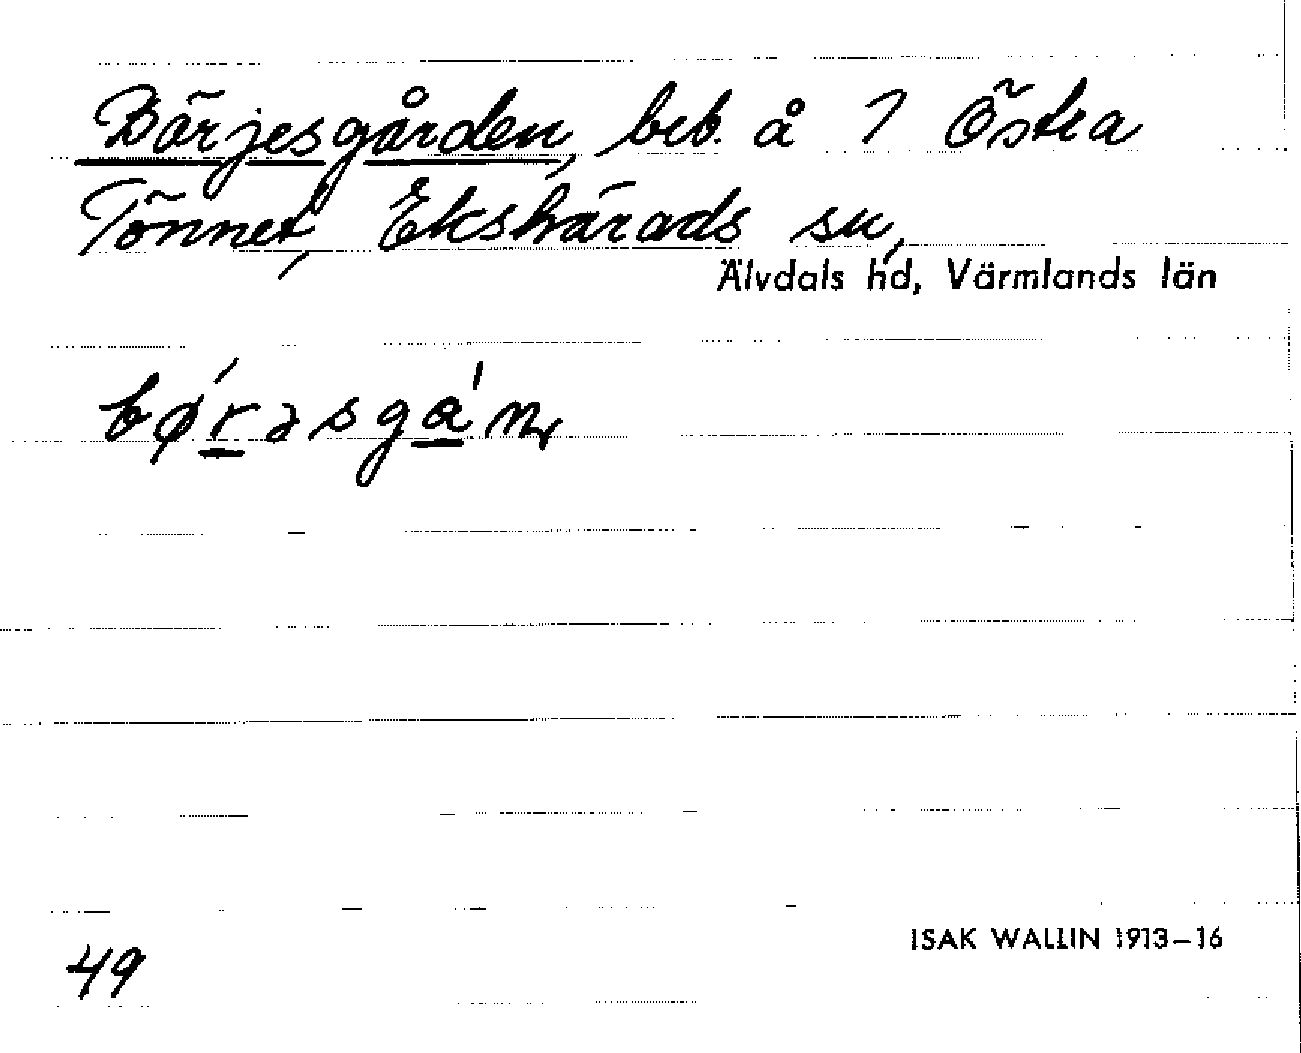 Börjesgården, beb. å 7 Östra
Tönnet, Ekshärads sn,
Älvdals hd, Värmlands län
bǿrəsga'ɳ
49
ISAK WALLIN 1913-16